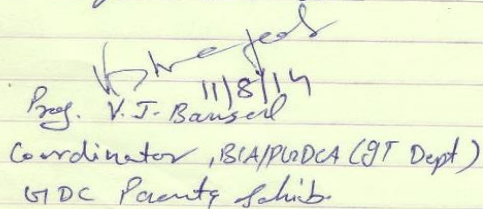 11/8/14
Prof. V. J. Bansal
Coordinator, BCA/PGDCA (IT Dept)
GDC Paonta Sahib.